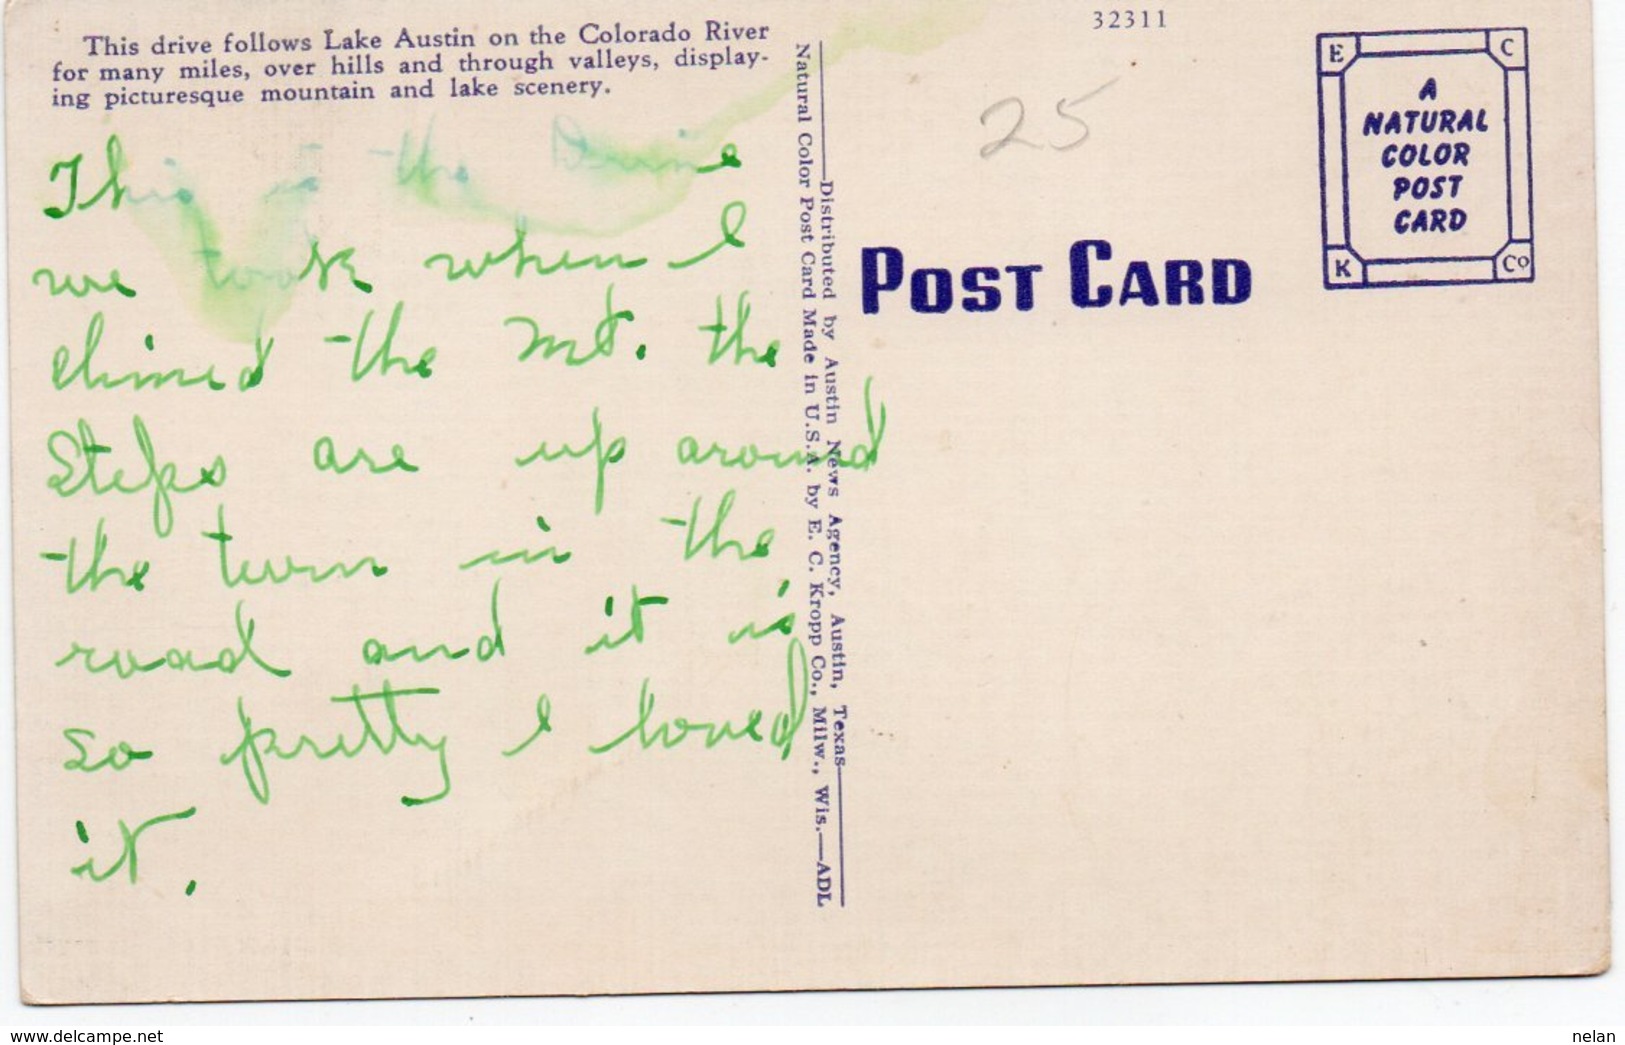 This drive follows Lake Austin on the Colorado River
for many miles, over hills and through valleys, display-
ing picturesque mountain and lake scenery.
This is the Drive
we took when I
climed the Mt. the
Steps are up around
the turn in the
road and it is
so pretty I loved
it.
Distributed by Austin News Agency, Austin, Texas
Natural Color Post Card Made in U.S.A. by E. C. Kropp Co., Milw., Wis.—ADL
32311
25
POST CARD
E C
A
NATURAL
COLOR
POST
CARD
K Co
www.delcampe.net
nelan